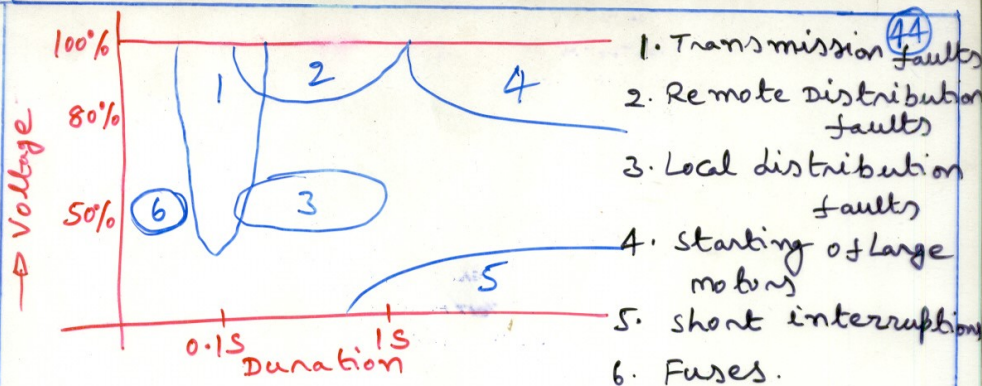 44
100%
80%
50%
→ Voltage
1
2
3
4
5
6
0.1S
1S
Duration
1. Transmission faults
2. Remote Distribution
faults
3. Local distribution
faults
4. Starting of Large
motors
5. Short interruptions
6. Fuses.